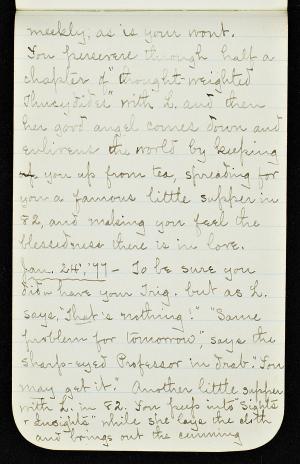 meekly, as is your wont.
You persevere through half a
chapter of "thought-weighted
Thucydides" with L. and then
her good angel comes down and
enlivens the world by keeping
you up from tea, spreading for
you a famous little supper in
82, and making you feel the
blessedness there is in love.
Jan. 24, '77 — To be sure you
didn have your Trig. but as L.
says, "That's nothing!" "Same
problem for tomorrow", says the
sharp-eyed Professor in drab. "You
may get it." Another little supper
with L. in 82. You peep into "Sights
& Insights" while she lays the cloth
and brings out the cunning